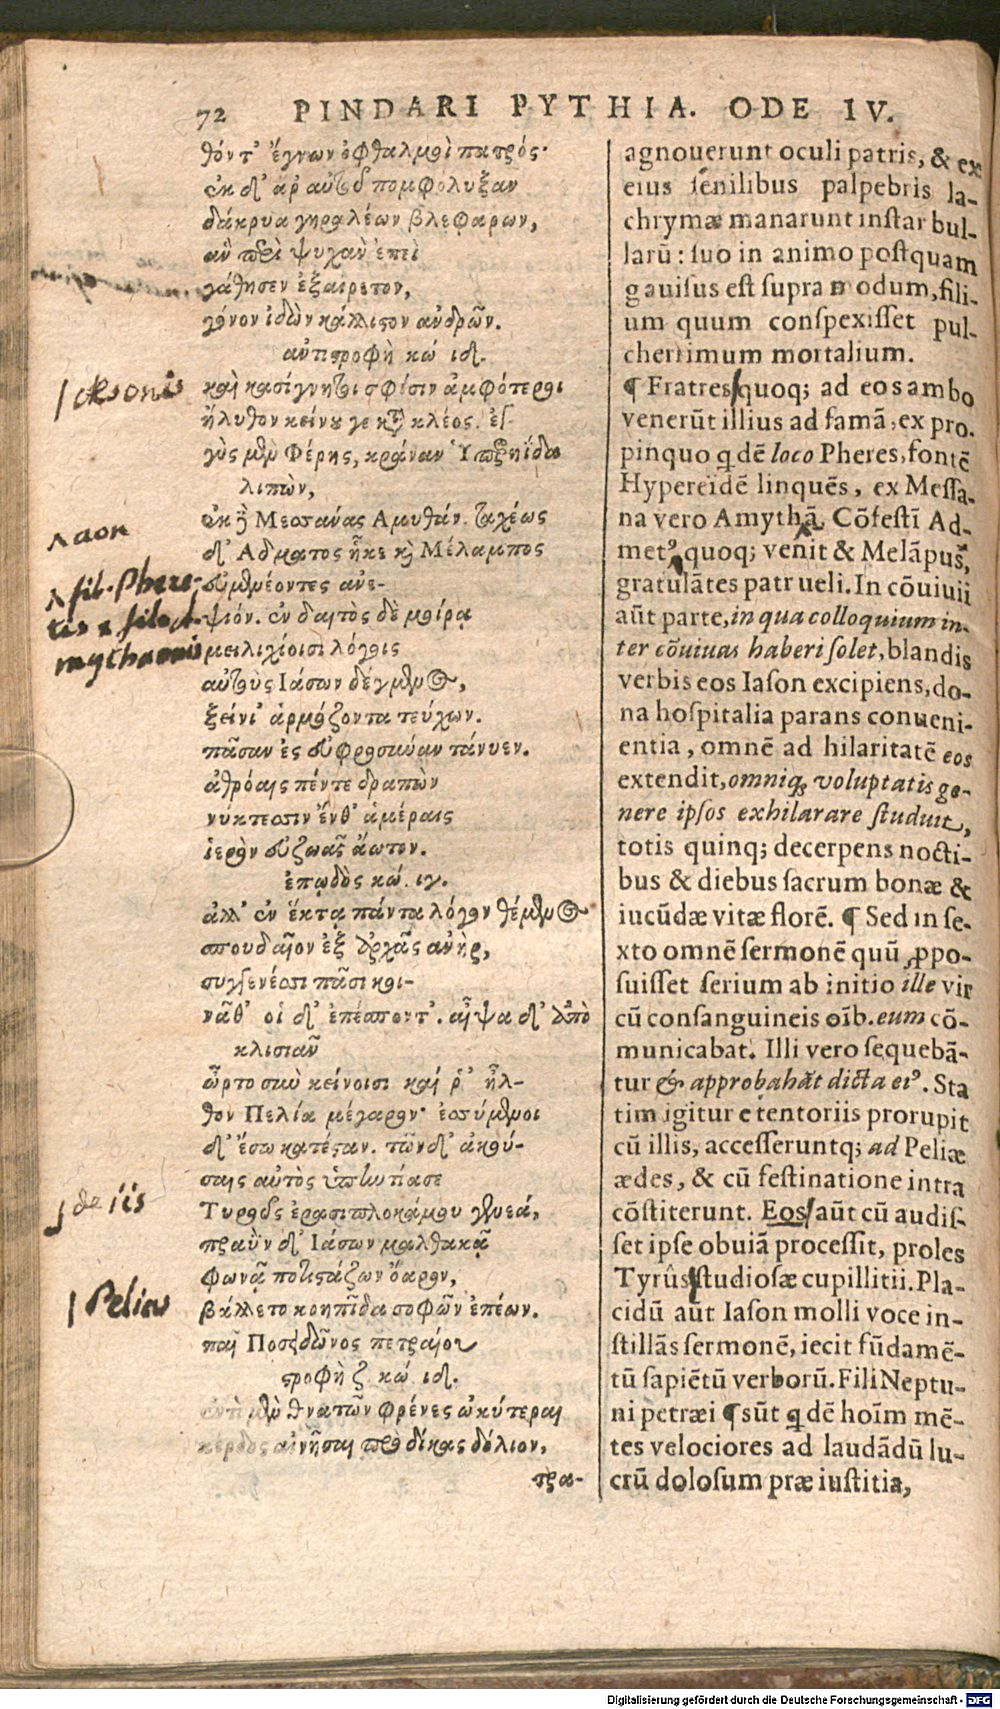 72 PINDARI PYTHIA. ODE IV.
θόντ' ἔγνων ὀφθαλμοὶ πατρός·
ἐκ δ' ἄρ αὐτοῦ πομφόλυξαν
δάκρυα γηραλέων βλεφάρων,
ἂν περὶ ψυχὰν ἐπεὶ
γάθησεν ἐξαίρετον,
γόνον ἰδὼν κάλλιστον ἀνδρῶν.
ἀντιστροφὴ κώ. ιδ.
καὶ κασίγνητοι σφίσιν ἀμφότεροι
ἤλυθον κείνου γε κατὰ κλέος. ἐγ-
γὺς μὲν Φέρης, κράναν Ὑπερηΐδα
λιπὼν,
ἐκ δὲ Μεσσάνας Ἀμυθάν. ταχέως
δ' Ἄδματος ἧκε καὶ Μέλαμπος
εὐμενέοντες ἀνε-
ψιόν. ἐν δαιτὸς δὲ μοίρᾳ
μειλιχίοισι λόγοις
αὐτοὺς Ἰάσων δέγμενος,
ξείνι' ἁρμόζοντα τεύχων.
πᾶσαν ἐς εὐφροσύναν τάνυεν.
ἀθρόαις πέντε δραπὼν
νύκτεσσιν ἔνθ' ἁμέραις
ἱερὸν εὐζωᾶς ἄωτον.
ἐπῳδὸς κώ. ιγ.
ἀλλ' ἐν ἕκτᾳ πάντα λόγον θέμενος
σπουδαῖον ἐξ ἀρχᾶς ἀνὴρ,
συγγενέσι πᾶσι κοι-
νᾶθ' οἱ δ' ἐπέσποντ'. αἶψα δ' ἀπὸ
κλισιᾶν
ὦρτο σὺν κείνοισι καί ῥ' ἦλ-
θον Πελία μέγαρον· ἐσσύμενοι
δ' ἔσω κατέσταν. τῶν δ' ἀκού-
σαις αὐτὸς ὑπηντίασε
Τυροῦς ἐρασιπλοκάμου γενεά,
πραῢν δ' Ἰάσων μαλθακᾷ
φωνᾷ ποτιστάζων ὄαρον,
βάλλετο κρηπῖδα σοφῶν ἐπέων.
παῖ Ποσειδῶνος πετραίου
στροφὴ ζ. κώ. ιδ.
ἐντὶ μὲν θνατῶν φρένες ὠκύτεραι
κέρδος αἰνῆσαι πρὸ δίκας δόλιον,
τρα-
agnouerunt oculi patris, & ex
eius senilibus palpebris la-
chrymæ manarunt instar bul-
larū: suo in animo postquam
gauisus est supra modum, fili-
um quum conspexisset pul-
cherrimum mortalium.
¶ Fratres quoq; ad eos ambo
venerūt illius ad famā, ex pro-
pinquo qdē loco Pheres, fontē
Hypereidē linquēs, ex Messa-
na vero Amythā. Cōfestī Ad-
met⁹ quoq; venit & Melāpus,
gratulātes patrueli. In cōuiuii
aūt parte, in qua colloquium in-
ter cōuiuas haberi solet, blandis
verbis eos Iason excipiens, do-
na hospitalia parans conueni-
entia, omnē ad hilaritatē eos
extendit, omniq; voluptatis ge-
nere ipsos exhilarare studuit,
totis quinq; decerpens nocti-
bus & diebus sacrum bonæ &
iucūdæ vitæ florē. ¶ Sed in se-
xto omnē sermonē quū ꝓpo-
suisset serium ab initio ille vir
cū consanguineis oīb. eum cō-
municabat. Illi vero sequebā-
tur & approbabāt dicta ei⁹. Sta
tim igitur e tentoriis prorupit
cū illis, accesseruntq; ad Peliæ
ædes, & cū festinatione intra
cōstiterunt. Eos aūt cū audis-
set ipse obuiā processit, proles
Tyrûs studiosæ cupillitii. Pla-
cidū aūt Iason molli voce in-
stillās sermonē, iecit fūdamē-
tū sapiētū verborū. Fili Neptu-
ni petræi ¶ sūt qdē hoīm mē-
tes velociores ad laudādū lu-
crū dolosum præ iustitia,
aon
fil. Phere-
tis & filo A-
mythaonis
de iis
Pelias
Digitalisierung gefördert durch die Deutsche Forschungsgemeinschaft - DFG